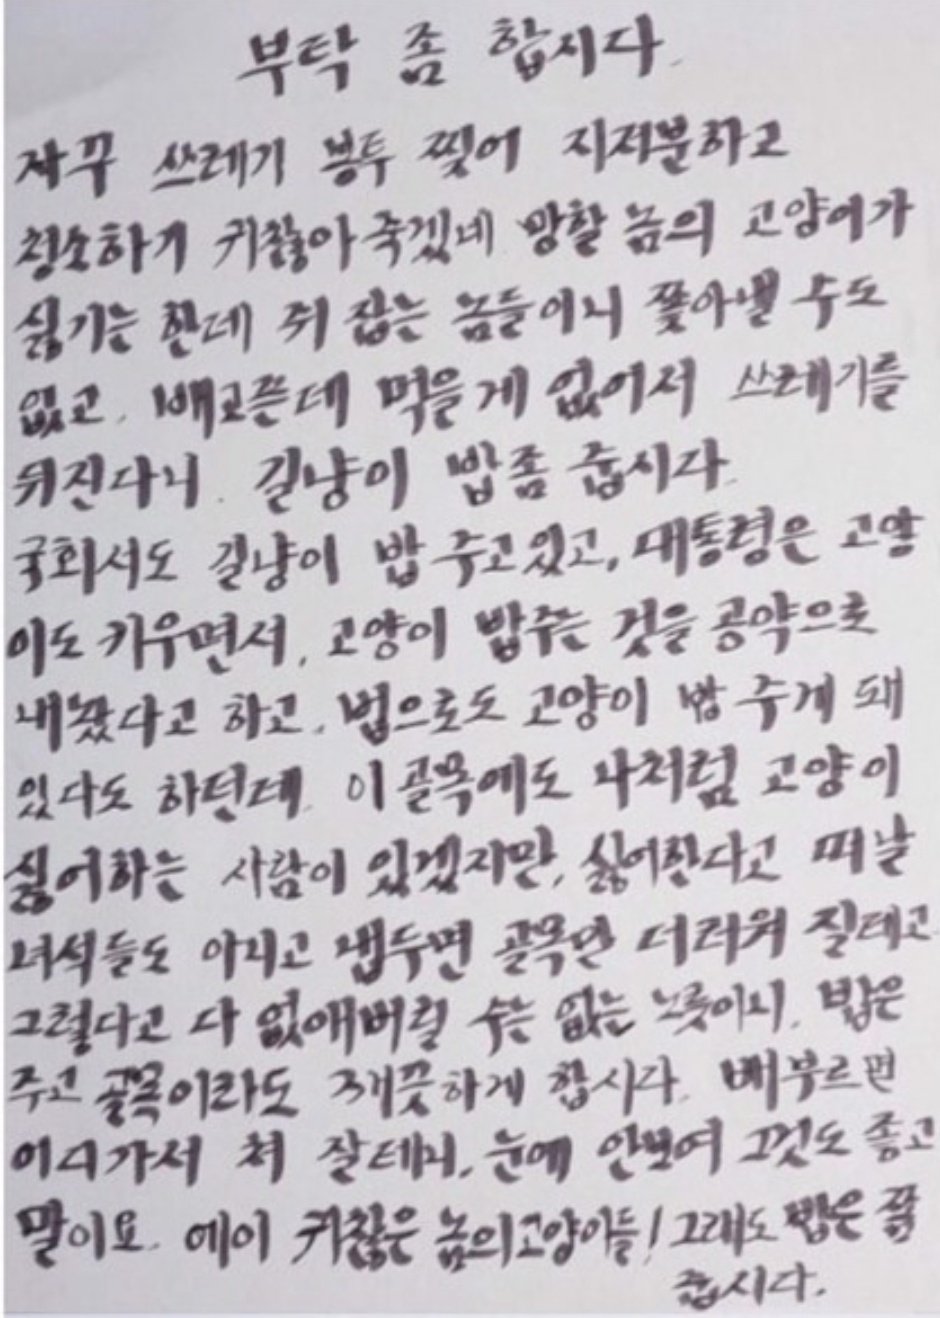 부탁 좀 합시다.
자꾸 쓰레기 봉투 찢어 지저분하고
청소하기 귀찮아 죽겠네 망할 놈의 고양이가
싫기는 한데 쥐 잡는 놈들이니 쫓아낼 수도
없고. 배고픈데 먹을게 없어서 쓰레기를
뒤진다니. 길냥이 밥좀 줍시다.
국회서도 길냥이 밥 주고있고, 대통령은 고양
이도 키우면서, 고양이 밥주는 것을 공약으로
내놨다고 하고, 법으로도 고양이 밥 주게 돼
있다도 하던데. 이 골목에도 나처럼 고양이
싫어하는 사람이 있겠지만, 싫어한다고 떠날
녀석들도 아니고 냅두면 골목만 더러워 질테고
그렇다고 다 없애버릴 수는 없는 노릇이니, 밥은
주고 골목이라도 깨끗하게 합시다. 배부르면
어디가서 쳐 잘테니, 눈에 안보여 그것도 좋고
말이요. 에이 귀찮은 놈의고양이들! 그래도 밥은 쫌
줍시다.